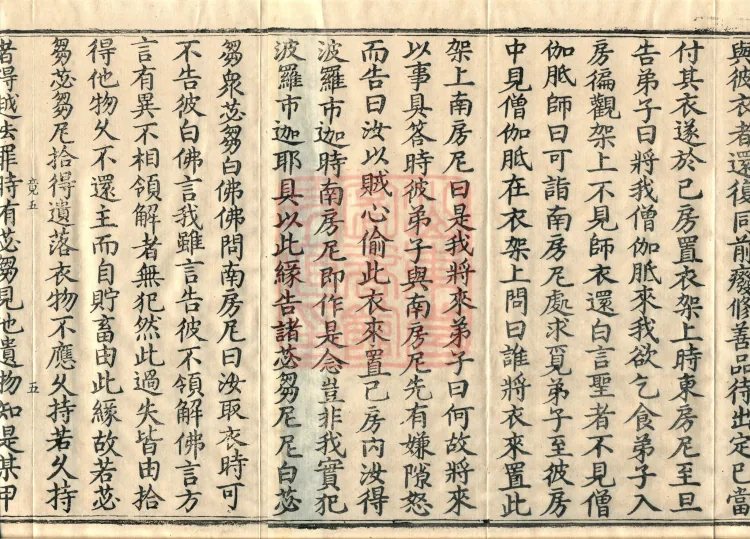 與彼衣者還復同前癈修善品待出定已當
付其衣遂於己房置衣架上時東房尼至旦
告弟子曰將我僧伽胝來我欲乞食弟子入
房徧觀架上不見師衣還白言聖者不見僧
伽胝師曰可詣南房尼處求覓弟子至彼房
中見僧伽胝在衣架上問曰誰將衣來置此
架上南房尼曰是我將來弟子曰何故將來
以事具答時彼弟子與南房尼先有嫌隙怒
而告曰汝以賊心偷此衣來置己房内汝得
波羅市迦時南房尼即作是念豈非我實犯
波羅市迦耶具以此緣告諸苾芻尼尼白苾
芻衆苾芻白佛佛問南房尼曰汝取衣時可
不告彼白佛言我雖言告彼不領解佛言方
言有異不相領解者無犯然此過失皆由拾
得他物久不還主而自貯畜由此緣故若苾
芻苾芻尼拾得遺落衣物不應久持若久持
竟五 五
者得越法罪時有苾芻見他遺物知是某甲